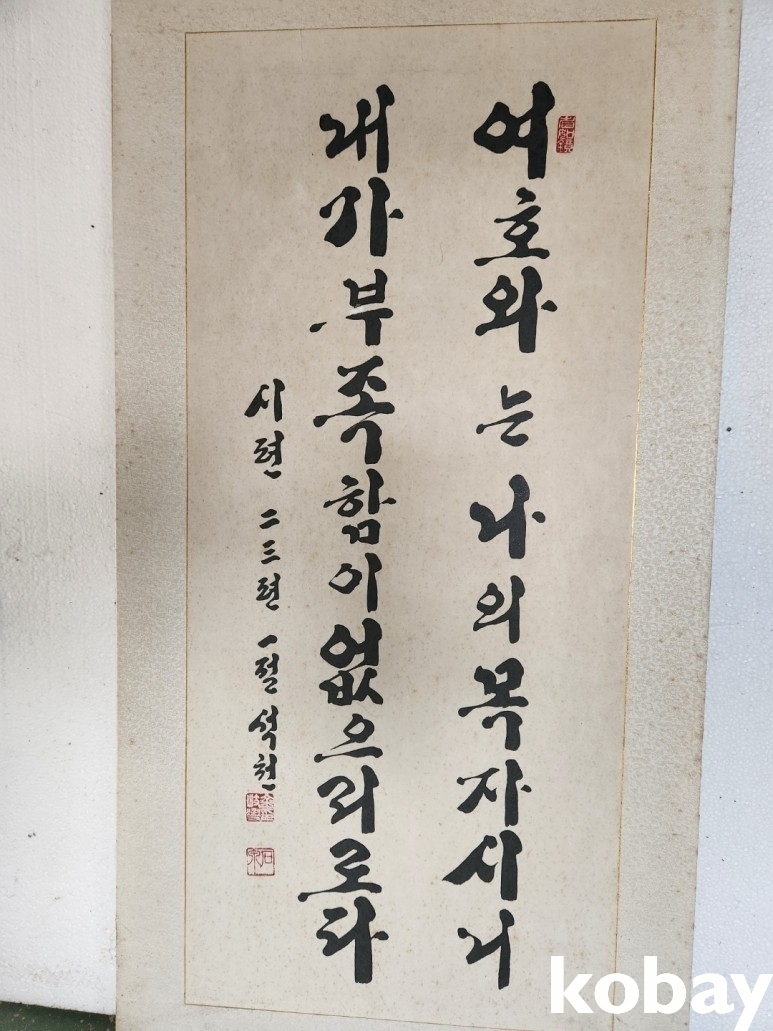 여호와는 나의 목자시니
내가 부족함이 없으리로다
시편 二三편 一절 석천
石泉
kobay